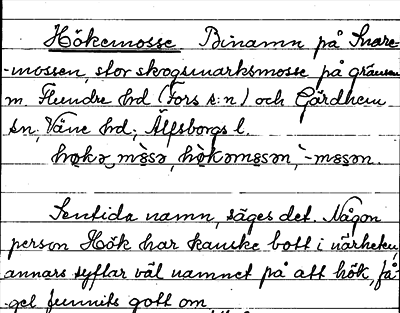 Hökemosse Binamn på Snare-
-mossen, stor skogsmarksmosse på gränsen
m. Flundre hd (Fors s:n) och Gärdhem
sn, Väne hd, Älfsborgs l.
hø̀kə mɷsə, hø̀kəmɷsən, -mɷsən.
Sentida namn, säges det. Någon
person Hök har kanske bott i närheten,
annars syftar väl namnet på att hök, få-
-gel funnits gott om